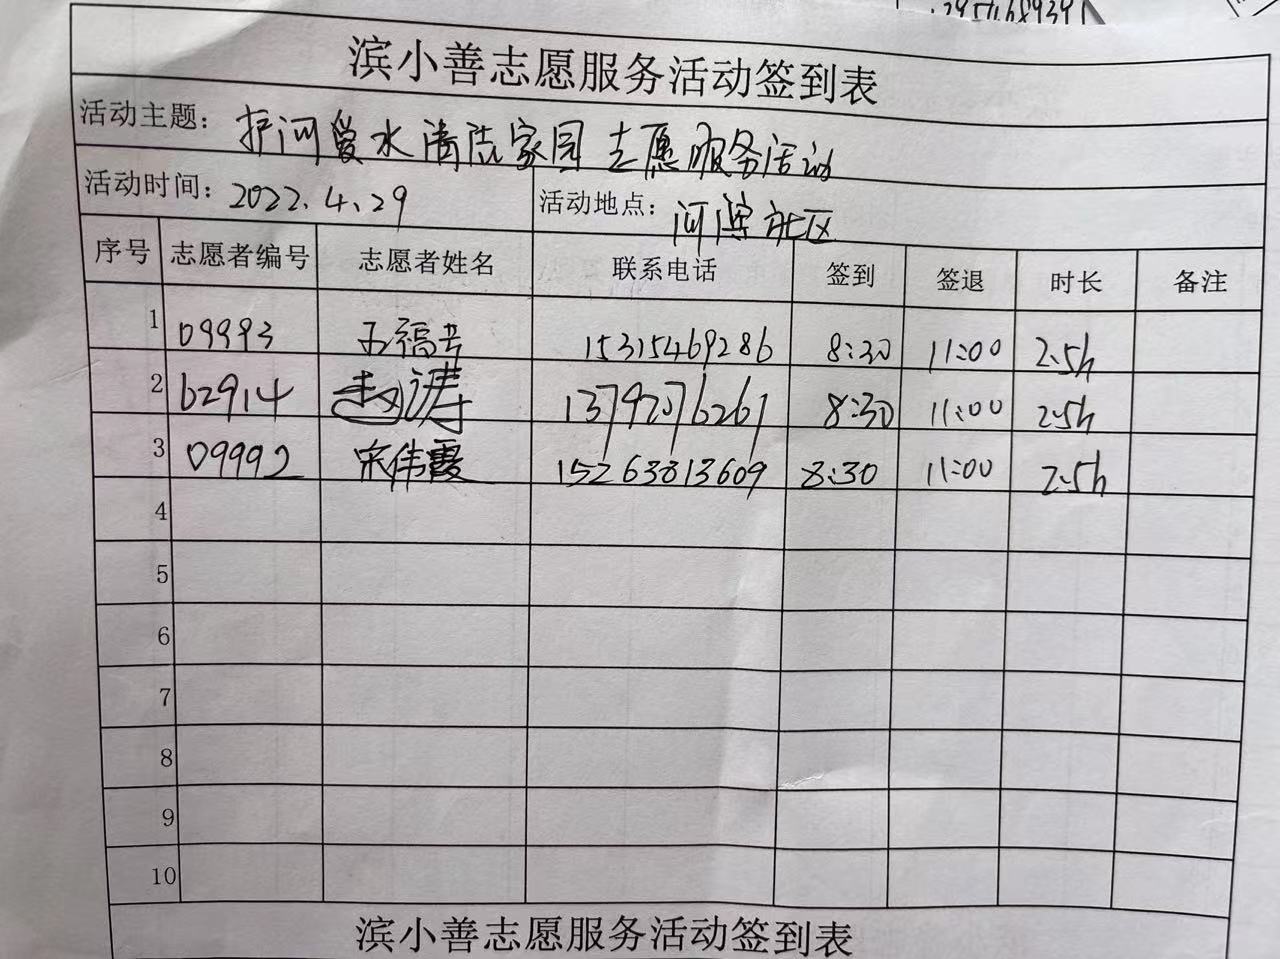 滨小善志愿服务活动签到表
活动主题：护河爱水清洁家园志愿服务活动
活动时间：2022.4.29 活动地点：河滨社区
序号 志愿者编号 志愿者姓名 联系电话 签到 签退 时长 备注
1 09993 王福 15315469286 8:30 11:00 2.5h
2 62914 赵涛 13792076261 8:30 11:00 2.5h
3 09992 宋伟霞 15263813609 8:30 11:00 2.5h
4
5
6
7
8
9
10
滨小善志愿服务活动签到表